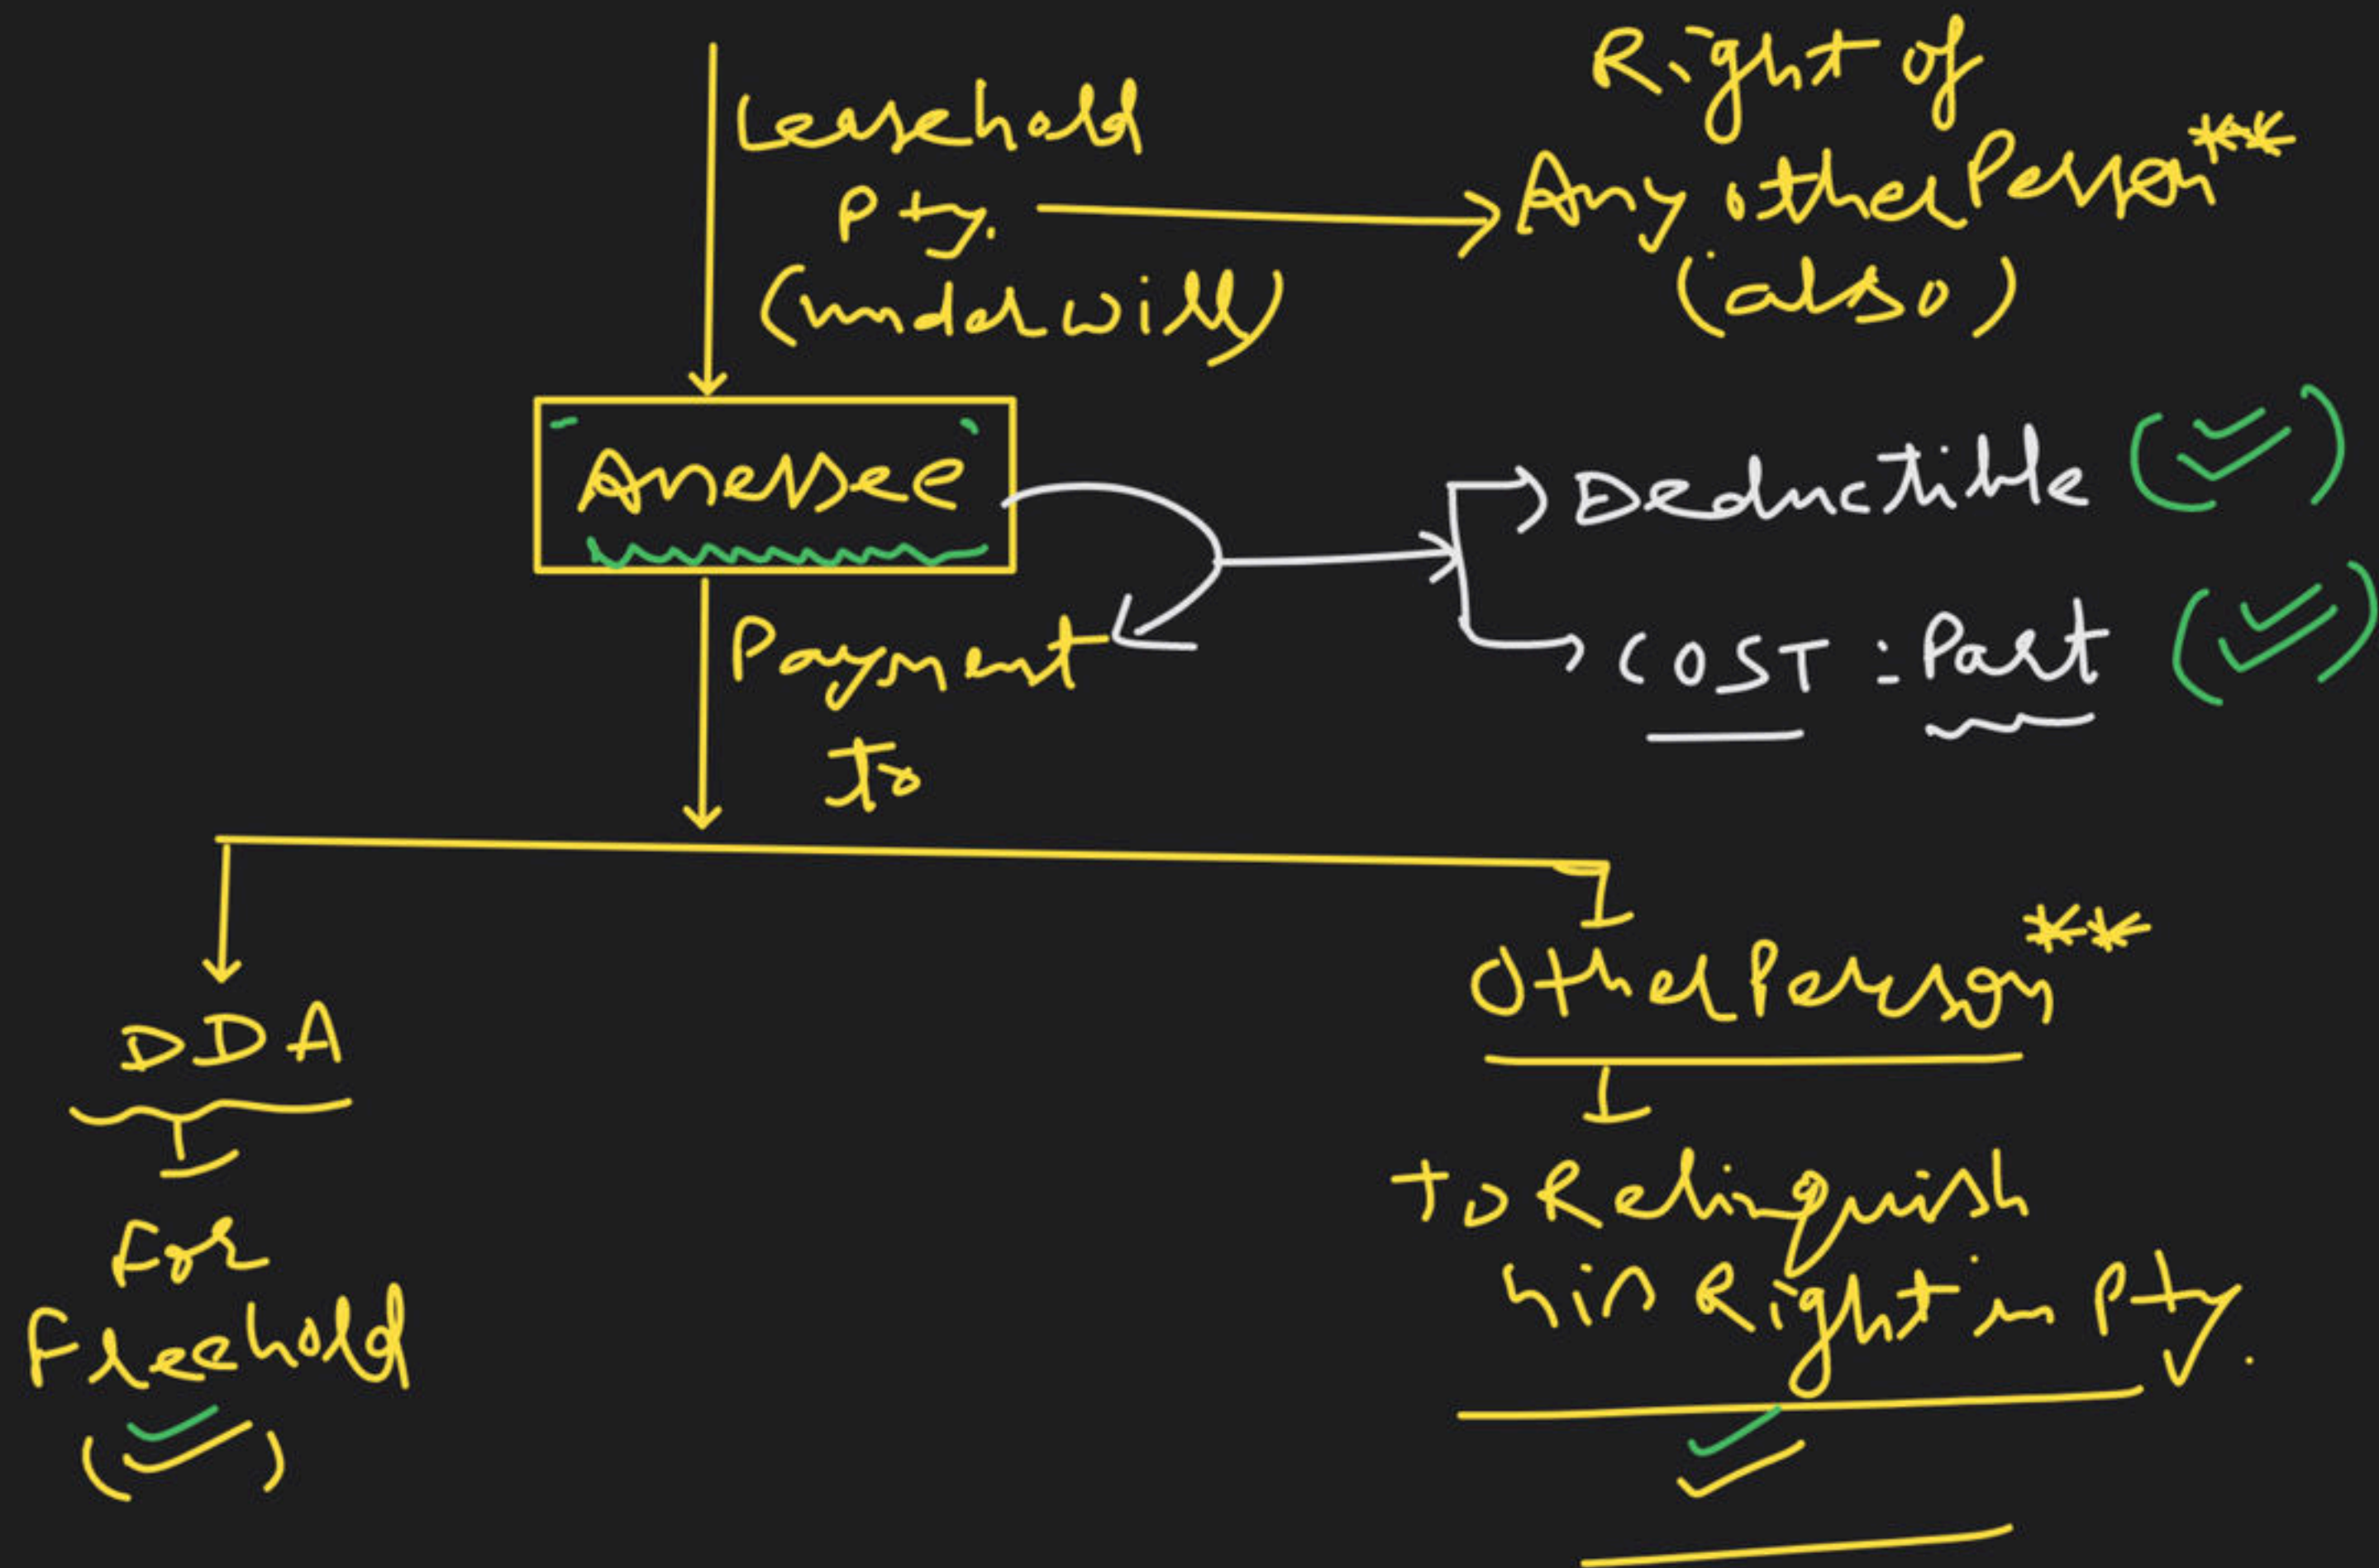 Leasehold
Pty.
(under will)
Right of
Any other Person**
(also)
Assessee
Deductible
COST : Part
Payment
to
DDA
For
Freehold
Other Person**
to Relinquish
his Right in Pty.